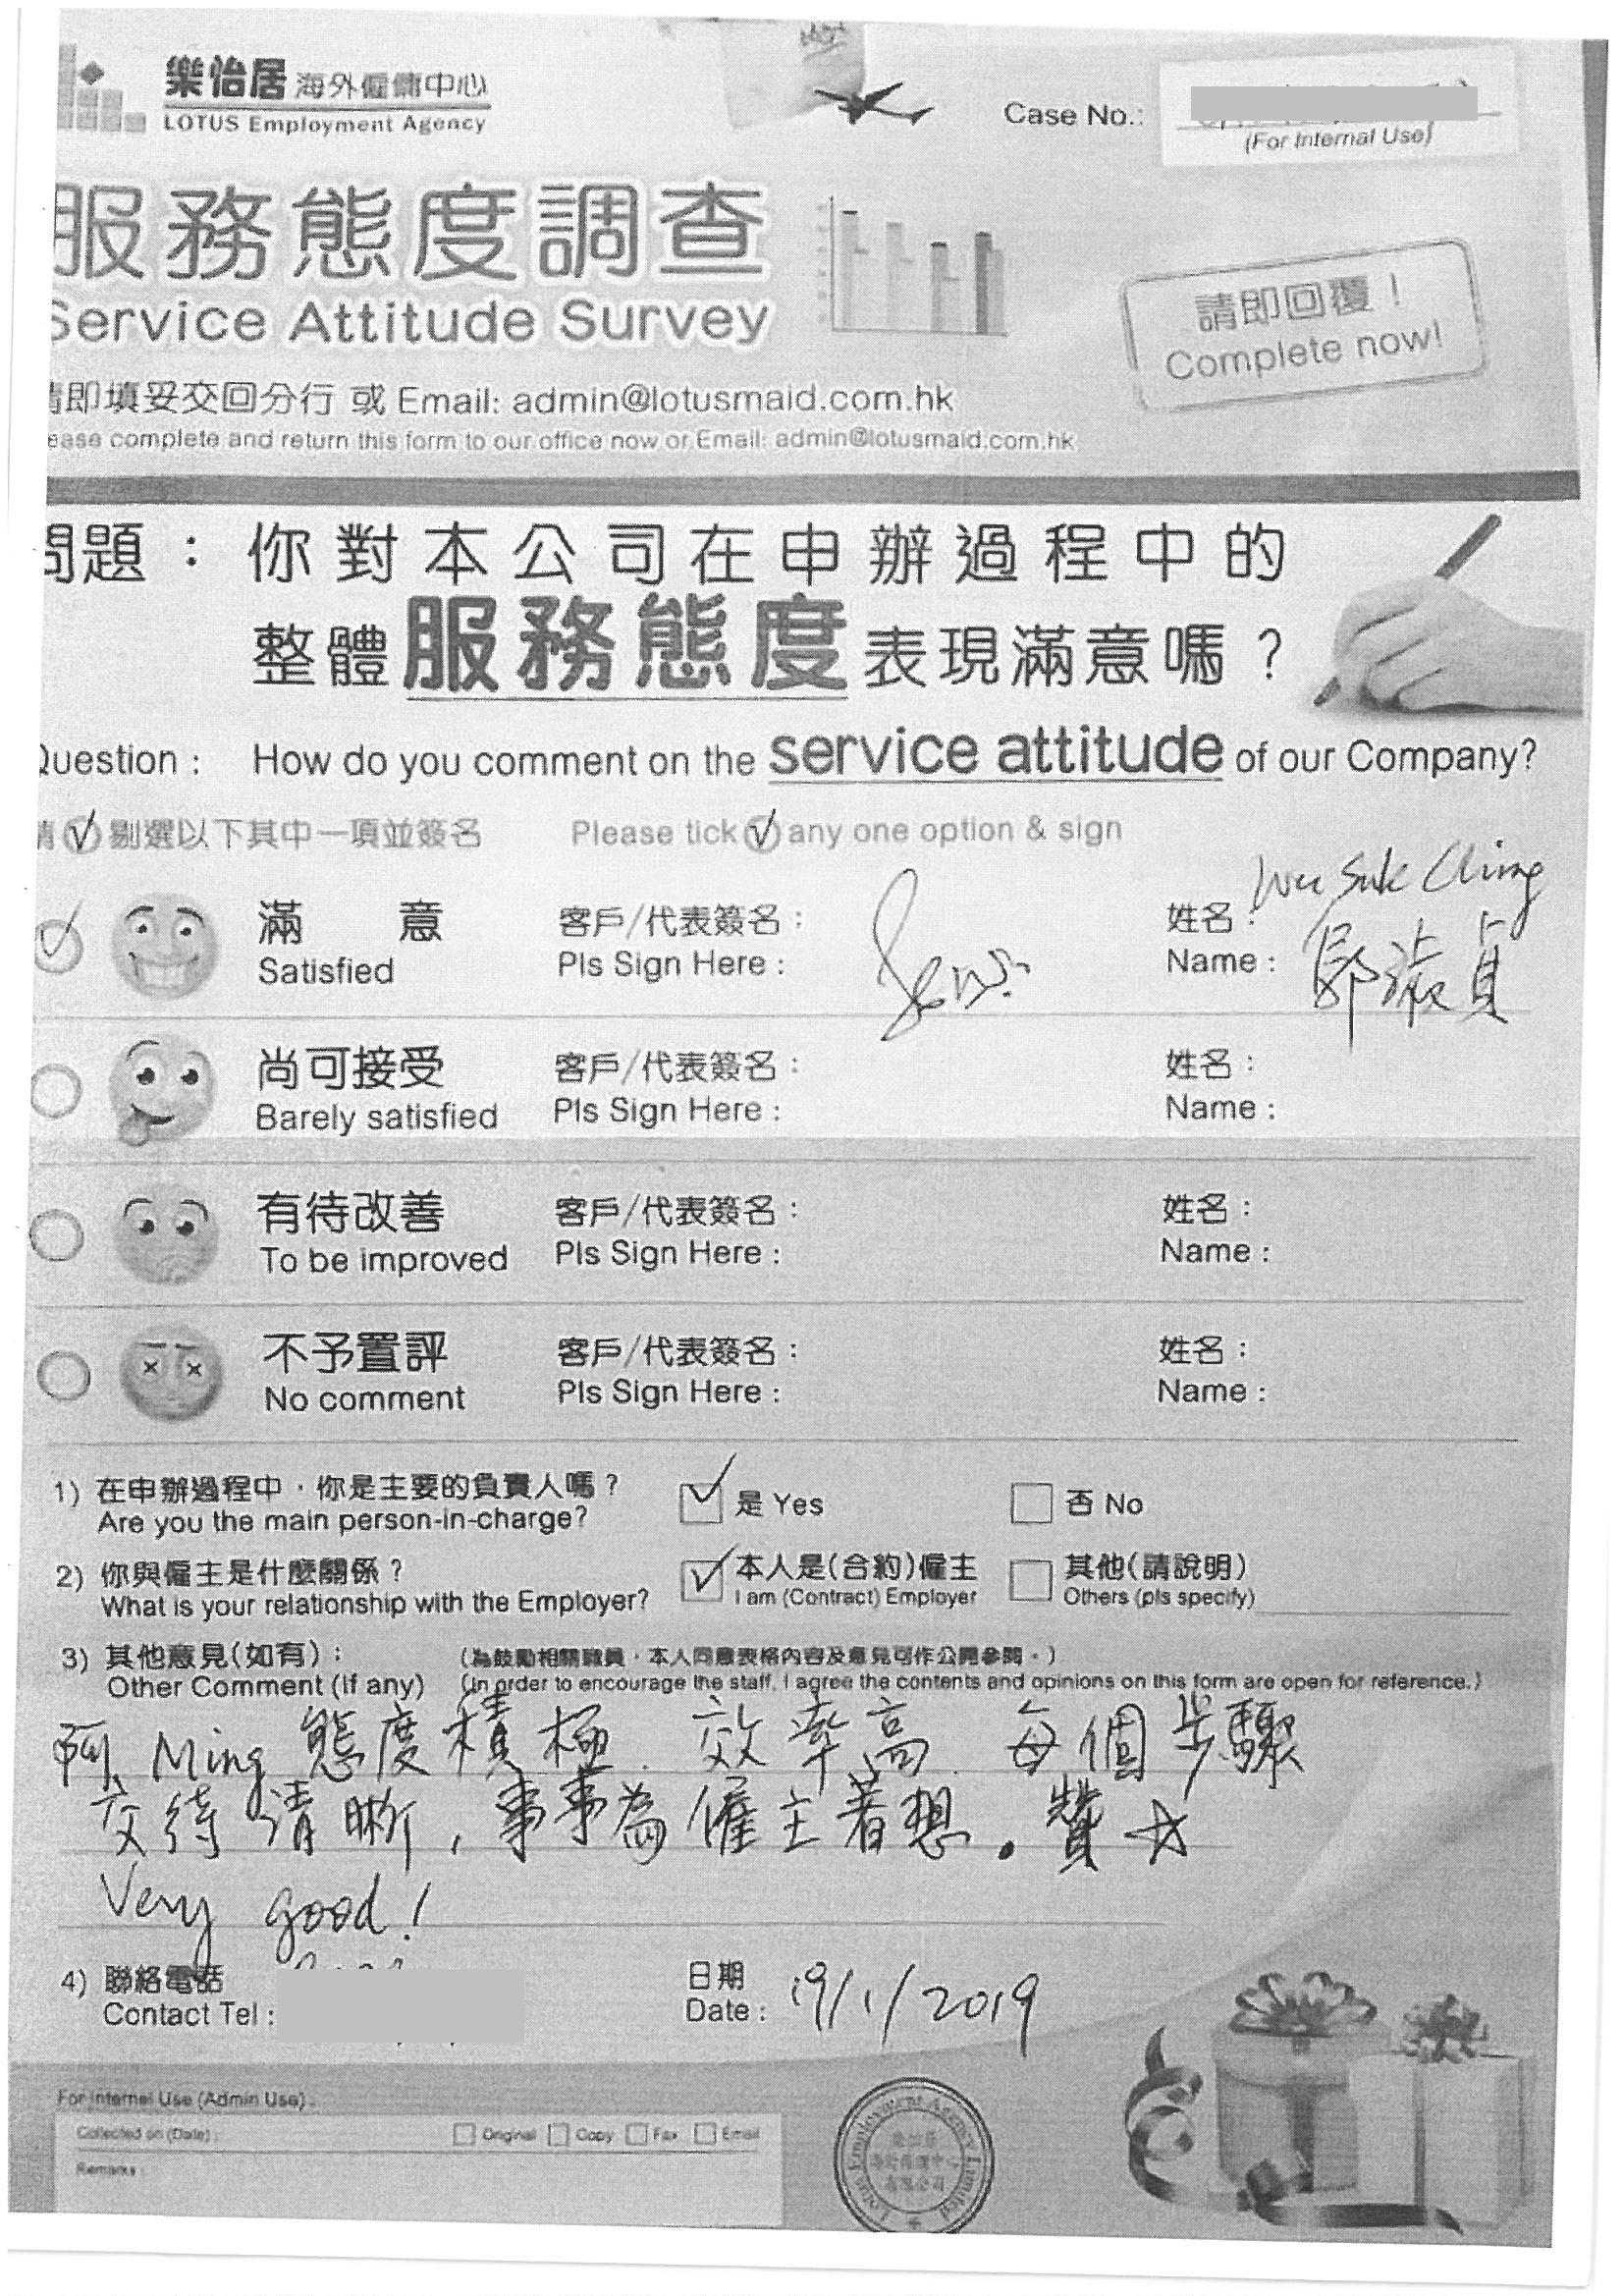 樂怡居 海外僱傭中心
LOTUS Employment Agency
Case No.:
(For Internal Use)
服務態度調查
Service Attitude Survey
請即回覆！
Complete now!
請即填妥交回分行 或 Email: admin@lotusmaid.com.hk
ease complete and return this form to our office now or Email: admin@lotusmaid.com.hk
問題：你對本公司在申辦過程中的
整體服務態度表現滿意嗎？
Question : How do you comment on the service attitude of our Company?
請 ✓ 剔選以下其中一項並簽名 Please tick ✓ any one option & sign
滿 意 客戶/代表簽名： 姓名：
Satisfied Pls Sign Here : Name : 淑貞
尚可接受 客戶/代表簽名： 姓名：
Barely satisfied Pls Sign Here : Name :
有待改善 客戶/代表簽名： 姓名：
To be improved Pls Sign Here : Name :
不予置評 客戶/代表簽名： 姓名：
No comment Pls Sign Here : Name :
1) 在申辦過程中，你是主要的負責人嗎？ 是 Yes 否 No
Are you the main person-in-charge?
2) 你與僱主是什麼關係？ 本人是(合約)僱主 其他(請說明)
What is your relationship with the Employer? I am (Contract) Employer Others (pls specify)
3) 其他意見(如有)： (為鼓勵相關職員，本人同意表格內容及意見可作公開參閱。)
Other Comment (If any) (In order to encourage the staff, I agree the contents and opinions on this form are open for reference.)
阿 Ming 態度積極. 效率高. 每個步驟
交待清晰, 事事為僱主著想。贊☆
Very good!
4) 聯絡電話 日期
Contact Tel : Date : 19/1/2019
For Internel Use (Admin Use) :
Collected on (Date) : Original Copy Fax Email
Remarks :
Lotus Employment Agency Limited